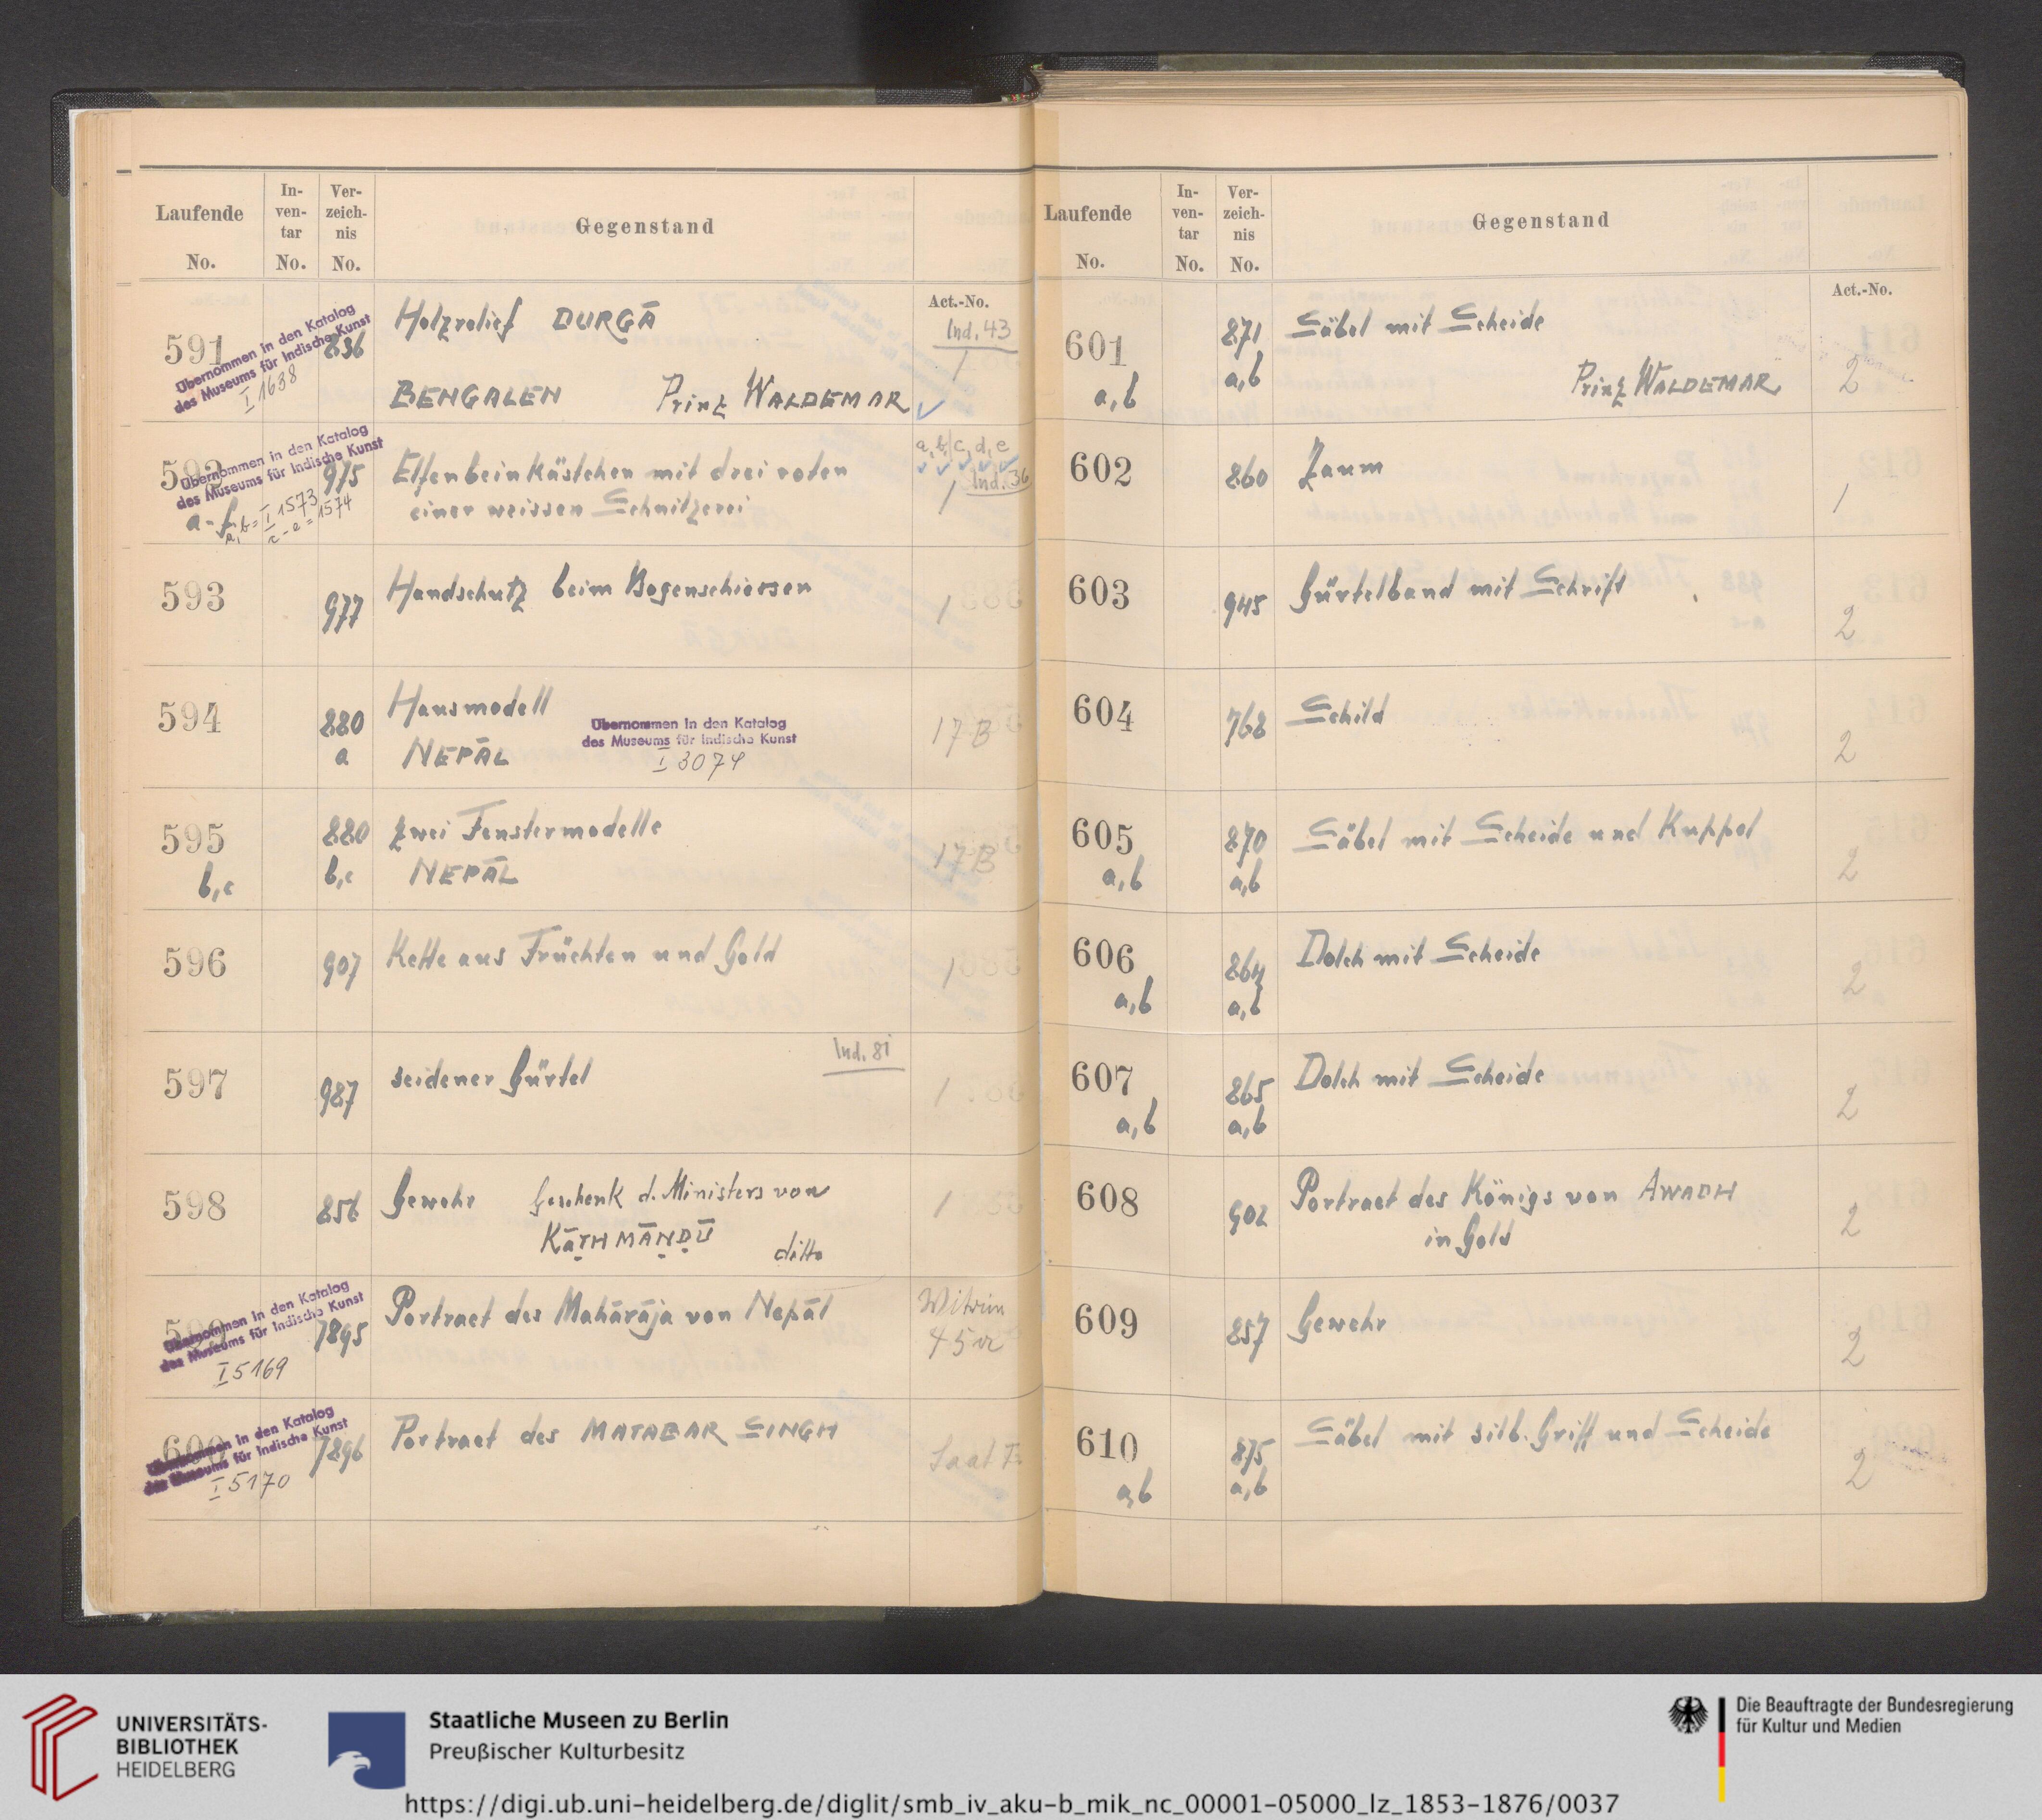 Laufende
No.
In-
ven-
tar
No.
Ver-
zeich-
nis
No.
Gegenstand
Act.-No.
591
Übernommen in den Katalog
des Museums für Indische Kunst
I 1638
836
Holzrelief DURGĀ
BENGALEN Prinz WALDEMAR
Ind. 43
1
592
Übernommen in den Katalog
des Museums für Indische Kunst
a-f
a,b = I 1573
c-e = 1574
975
Elfenbeinkästchen mit drei roten
einer weissen Schnitzerei
a, b, c, d, e
Ind. 36
1
593
977
Handschutz beim Bogenschiessen
1
594
880
a
Hausmodell
NEPĀL
Übernommen in den Katalog
des Museums für Indische Kunst
I 3074
17 B
595
b,c
880
b,c
zwei Fenstermodelle
NEPĀL
17 B
596
907
Kette aus Früchten und Gold
1
597
987
seidener Gürtel
Ind. 81
1
598
856
Gewehr Geschenk d. Ministers von
KĀṬHMĀṆḌŪ
ditto
1
599
Übernommen in den Katalog
des Museums für Indische Kunst
I 5169
7895
Portraet des Mahārāja von Nepāl
45
600
Übernommen in den Katalog
des Museums für Indische Kunst
I 5170
7896
Portraet des MATABAR SINGH
Saal
Laufende
No.
In-
ven-
tar
No.
Ver-
zeich-
nis
No.
Gegenstand
Act.-No.
601
a,b
871
a,b
Säbel mit Scheide
Prinz WALDEMAR
2
602
860
Zaum
1
603
945
Gürtelband mit Schrift
2
604
768
Schild
2
605
a,b
870
a,b
Säbel mit Scheide und Kuppel
2
606
a,b
864
a,b
Dolch mit Scheide
2
607
a,b
865
a,b
Dolch mit Scheide
2
608
902
Portraet des Königs von AWADH
in Gold
2
609
857
Gewehr
2
610
a,b
875
a,b
Säbel mit silb. Griff und Scheide
2
UNIVERSITÄTS-
BIBLIOTHEK
HEIDELBERG
Staatliche Museen zu Berlin
Preußischer Kulturbesitz
Die Beauftragte der Bundesregierung
für Kultur und Medien
https://digi.ub.uni-heidelberg.de/diglit/smb_iv_aku-b_mik_nc_00001-05000_lz_1853-1876/0037